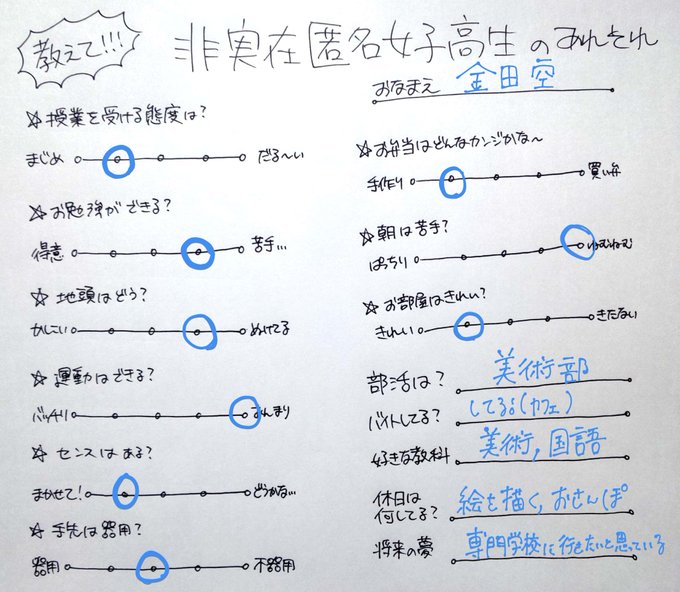 教えて!!!
非実在匿名女子高生のあれそれ
おなまえ 金田 空
☆授業を受ける態度は?
まじめ だる〜い
☆お勉強ができる?
得意 苦手…
☆地頭はどう?
かしこい ぬけてる
☆運動はできる?
バッチリ あんまり
☆センスはある?
まかせて! どうかな…
☆手先は器用?
器用 不器用
☆お弁当はどんなカンジかな〜
手作り 買い弁
☆朝は苦手?
ぱっちり ねむねむ
☆お部屋はきれい?
きれい きたない
部活は? 美術部
バイトしてる? してる(カフェ)
好きな教科 美術,国語
休日は
何してる? 絵を描く,おさんぽ
将来の夢 専門学校に行きたいと思っている